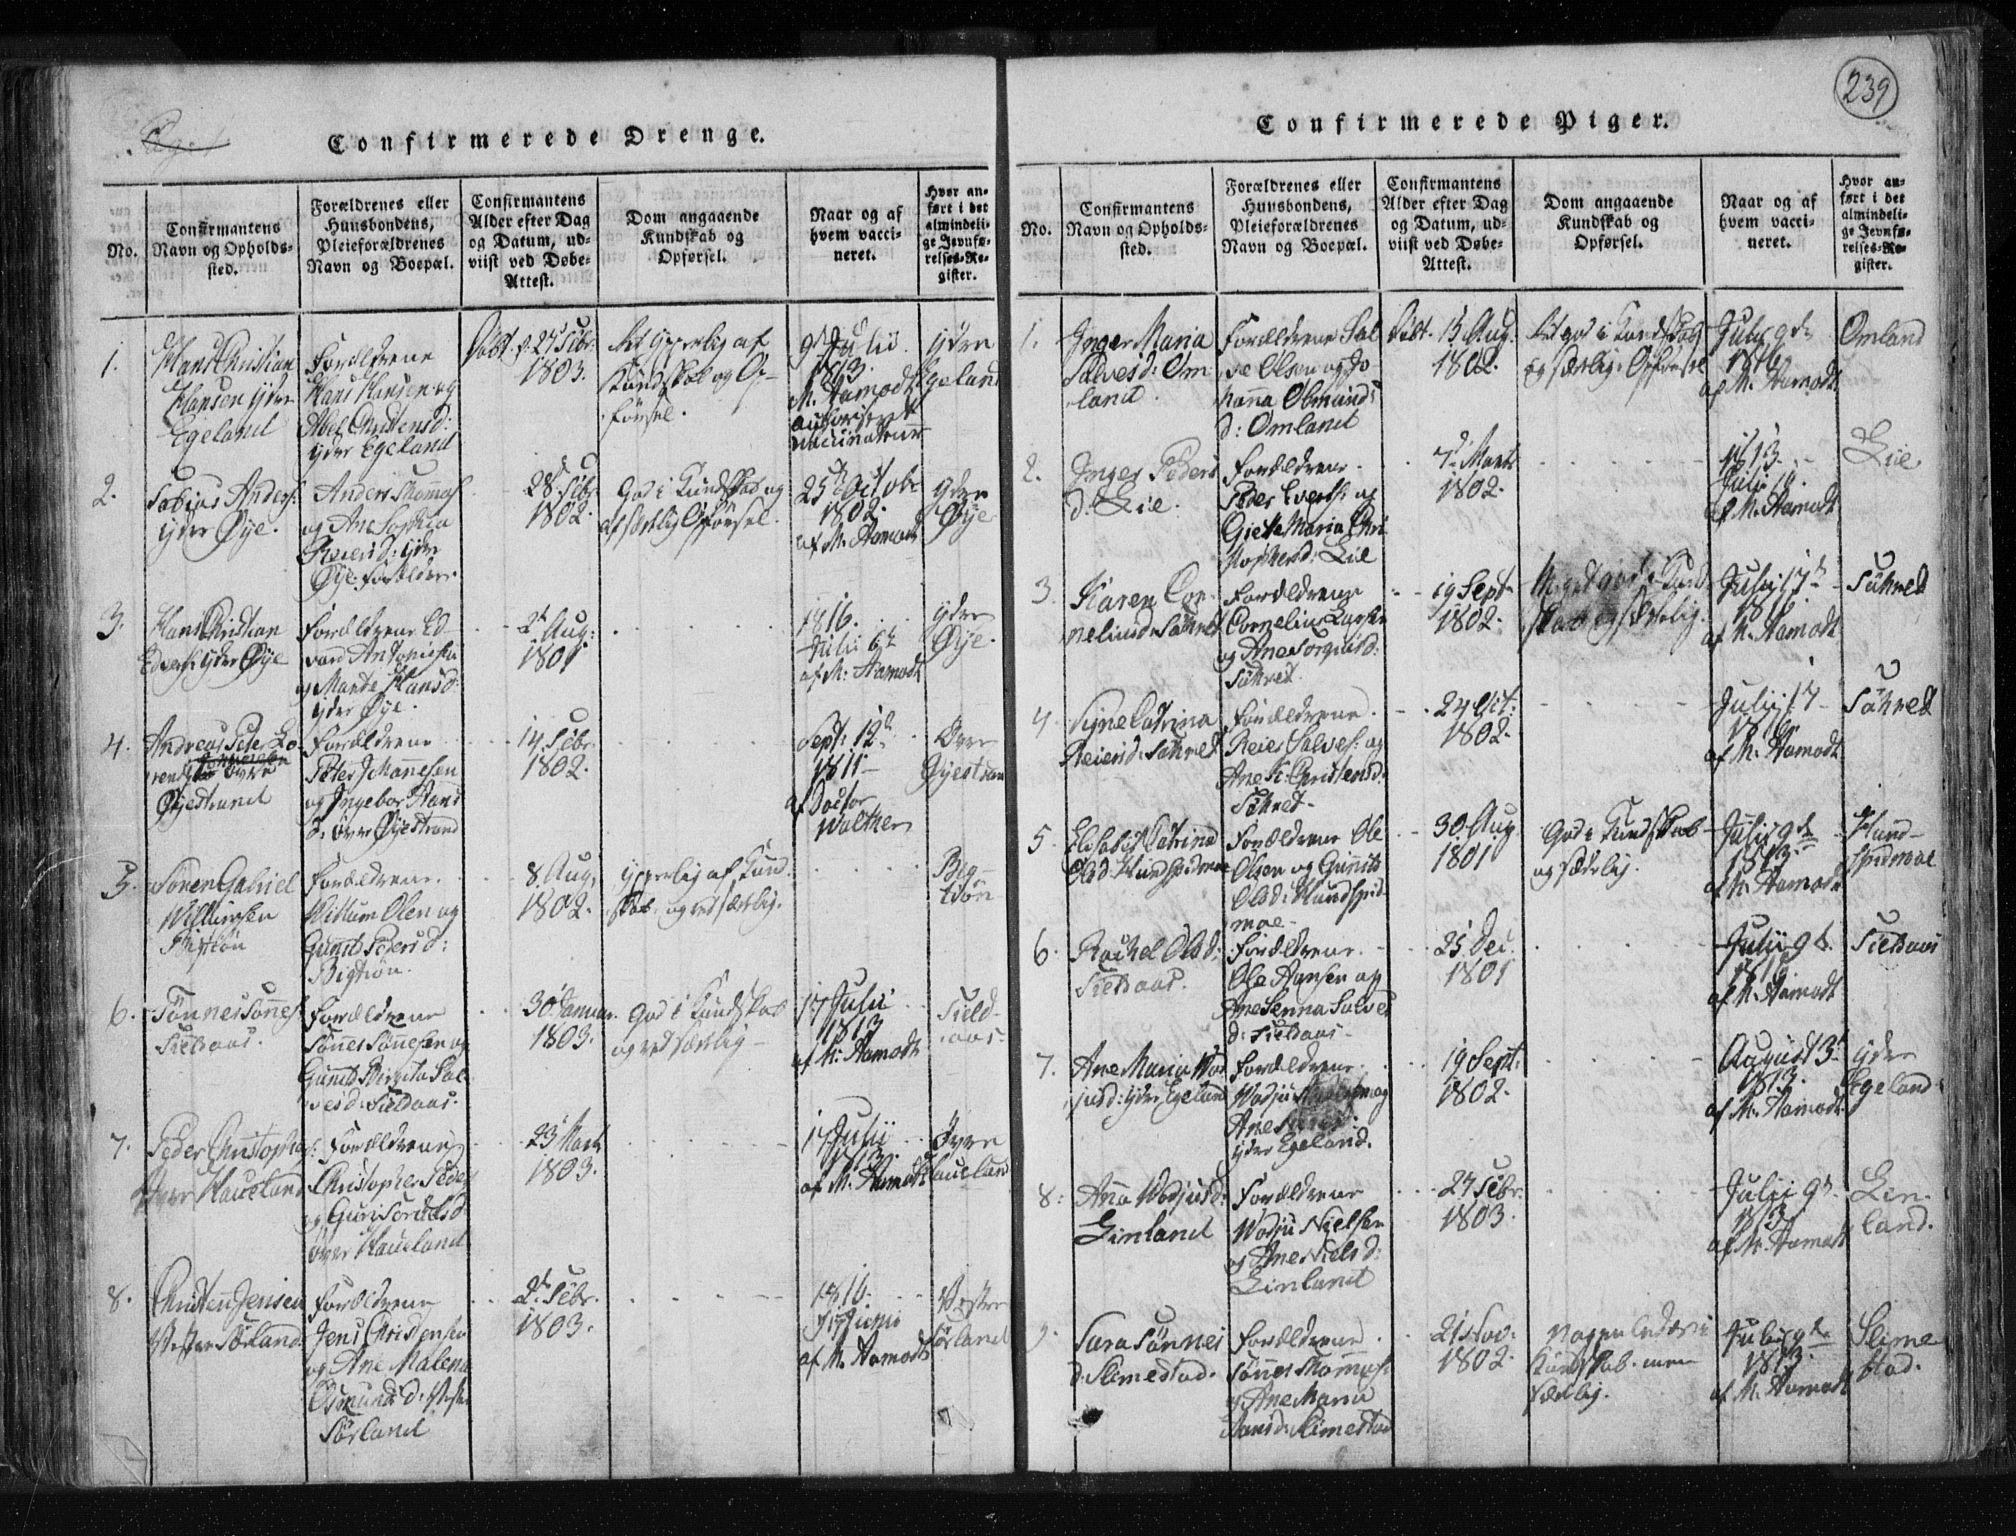 239
Confirmerede Drenge.
No.
Confirmantens
Navn og Opholds-
sted.
Forældrenes eller
Huusbondens,
Pleieforældrenes
Navn og Boepæl.
Confirmantens
Alder efter Dag
og Datum, ud-
viist ved Døbe-
Attest.
Dom angaaende
Kundskab og
Opførsel.
Naar og af
hvem vacci-
neret.
Hvor an-
ført i det
almindeli-
ge Jevnfø-
relses-Re-
gister.
1.
Hans Christian
Hansen ydre
Egeland
Forældrene
Hans Hansen og
Abel Christensd:
ydre Egeland
27 Febr:
1803.
af
Kundskab og Op-
førsel.
9d Julii
1813.
M. Aamodt
ydre
Egeland
2.
Tobias Anders:
ydre Øye.
Anders Thomas:
og Ane Sophia
Reiersd: ydre
Øye. Forældre.
28 Febr
1802.
God i Kundskab og
af sædelig Opførsel.
25 Octobr
1802.
af M. Aamodt
ydre
Øye
3.
Hans Christian
Edvards: ydre Øye
Forældrene Ed-
vard Antonisen
og Marte Hansd:
ydre Øye.
2d Aug:
1801
1816.
Julii 6d
af M: Aamodt
ydre
Øye.
4.
Andreas Peter Lo-
Øvre
Øyestrand
Forældrene
Peter Johannesen
og Ingebor Hans
d: øvre Øyestrand
14 Febr.
1802.
Sept: 12d
1811
af Doctor
Walther
Øvre
Øyestran
5.
Søren Gabriel
Willumsen
Bigtiøn
Forældrene
Willum Olen og
Gunild Peders d:
Bigtiøn.
8. Aug.
1802.
ypperlig af Kund-
skab og sædelig.
Big-
tiøn
6.
Tønnes Tønnes:
Fieldaas.
Forældrene
Tønnes Tønnesen og
Gunild Birgita Sal-
vesd: Fieldaas.
30 Januar.
1803.
God i Kundskab
og sædelig
17 Julii
1813
af M: Aamodt
Field-
aas
7.
Peder Christophers:
Øvre Haueland
Forældrene
Christopher Peders:
og Guri Torkelsd
øvre Haueland
23 Marti
1803.
17 Julii
1813.
af M. Aamodt
Øvre
Haueland
8.
Christen Jensen
Vester Sørland.
Forældrene
Jens Christensen
og Ane Malena
Osmunds d: Vester
Sørland
2d Febr.
1803.
1816.
Junii
af M. Aamodt
Vester
Sørland
Confirmerede Piger.
No.
Confirmantens
Navn og Opholds-
sted.
Forældrenes eller
Huusbondens,
Pleieforældrenes
Navn og Boepæl.
Confirmantens
Alder efter Dag
og Datum, ud-
viist ved Døbe-
Attest.
Dom angaaende
Kundskab og
Opførsel.
Naar og af
hvem vacci-
neret.
Hvor an-
ført i det
almindeli-
ge Jevnfø-
relses-Re-
gister.
1.
Inger Maria
Salvesd: Om-
land.
Forældrene Sal-
ve Olsen og Jo-
hanna Osmunds
d: Omland
13 Aug.
1802.
god i Kundskab
og sædelig Opførsel
July 9de
af M. Aamodt
Omland
2.
Inger Peders
d: Lie.
Forældrene
Peder Evers: og
Giete Maria Chri-
stophersd: Lie
7d Marti
1802.
1813
Julii
af M. Aamodt
Lie
3.
Karen Cor-
neliusd:
Forældrene
Cornelius Larsen
og Ane Torgiusd:
19 Sept
1802.
Meget god i Kund-
skab og sædelig.
July 17
af M. Aamodt
4.
Signe Catrina
Reiersd:
Forældrene
Reier Salves: og
Ane K: Christensd:
24 Oct:
1802.
July 17
af M. Aamodt
5.
Elisabet Catrina
Olsd: Hundspidmoe
Forældrene Ole
Olsen og Gunild
Olsd: Hundspid-
moe
30. Aug
1801
God i Kundskab
og sædelig.
Julii 9de
1813.
af M. Aamodt
Hund-
spidmoe
6.
Rachel Olsd:
Fieldaas.
Forældrene
Ole Hansen og
Ane Senna Salves
d: Fieldaas
25 Dec.
1801
Julii 9d.
af M. Aamodt
Fieldaas
7.
Ane Maria Vod-
jusd: ydre Egeland
Forældrene
Vodju
Ane
ydre Egeland.
19 Sept:
1802.
August 3d
1813.
af M. Aamodt
ydre
Egeland
8.
Anna Vodjusd:
Linland
Forældrene
Vodju Nielsen
og Ane Niels d:
Linland
27 Febr.
1803.
Julii 9d
1813
af M. Aamodt
Lin-
land.
9.
Sara Tønnes
d: Slimestad.
Forældrene
Tønnes Thomas:
og Ane Maria
Hansd: Slimestad
21 Nov:
1802.
Kundskab. men
sædelig.
July 9de
1813.
af M. Aamodt
Slime-
stad.